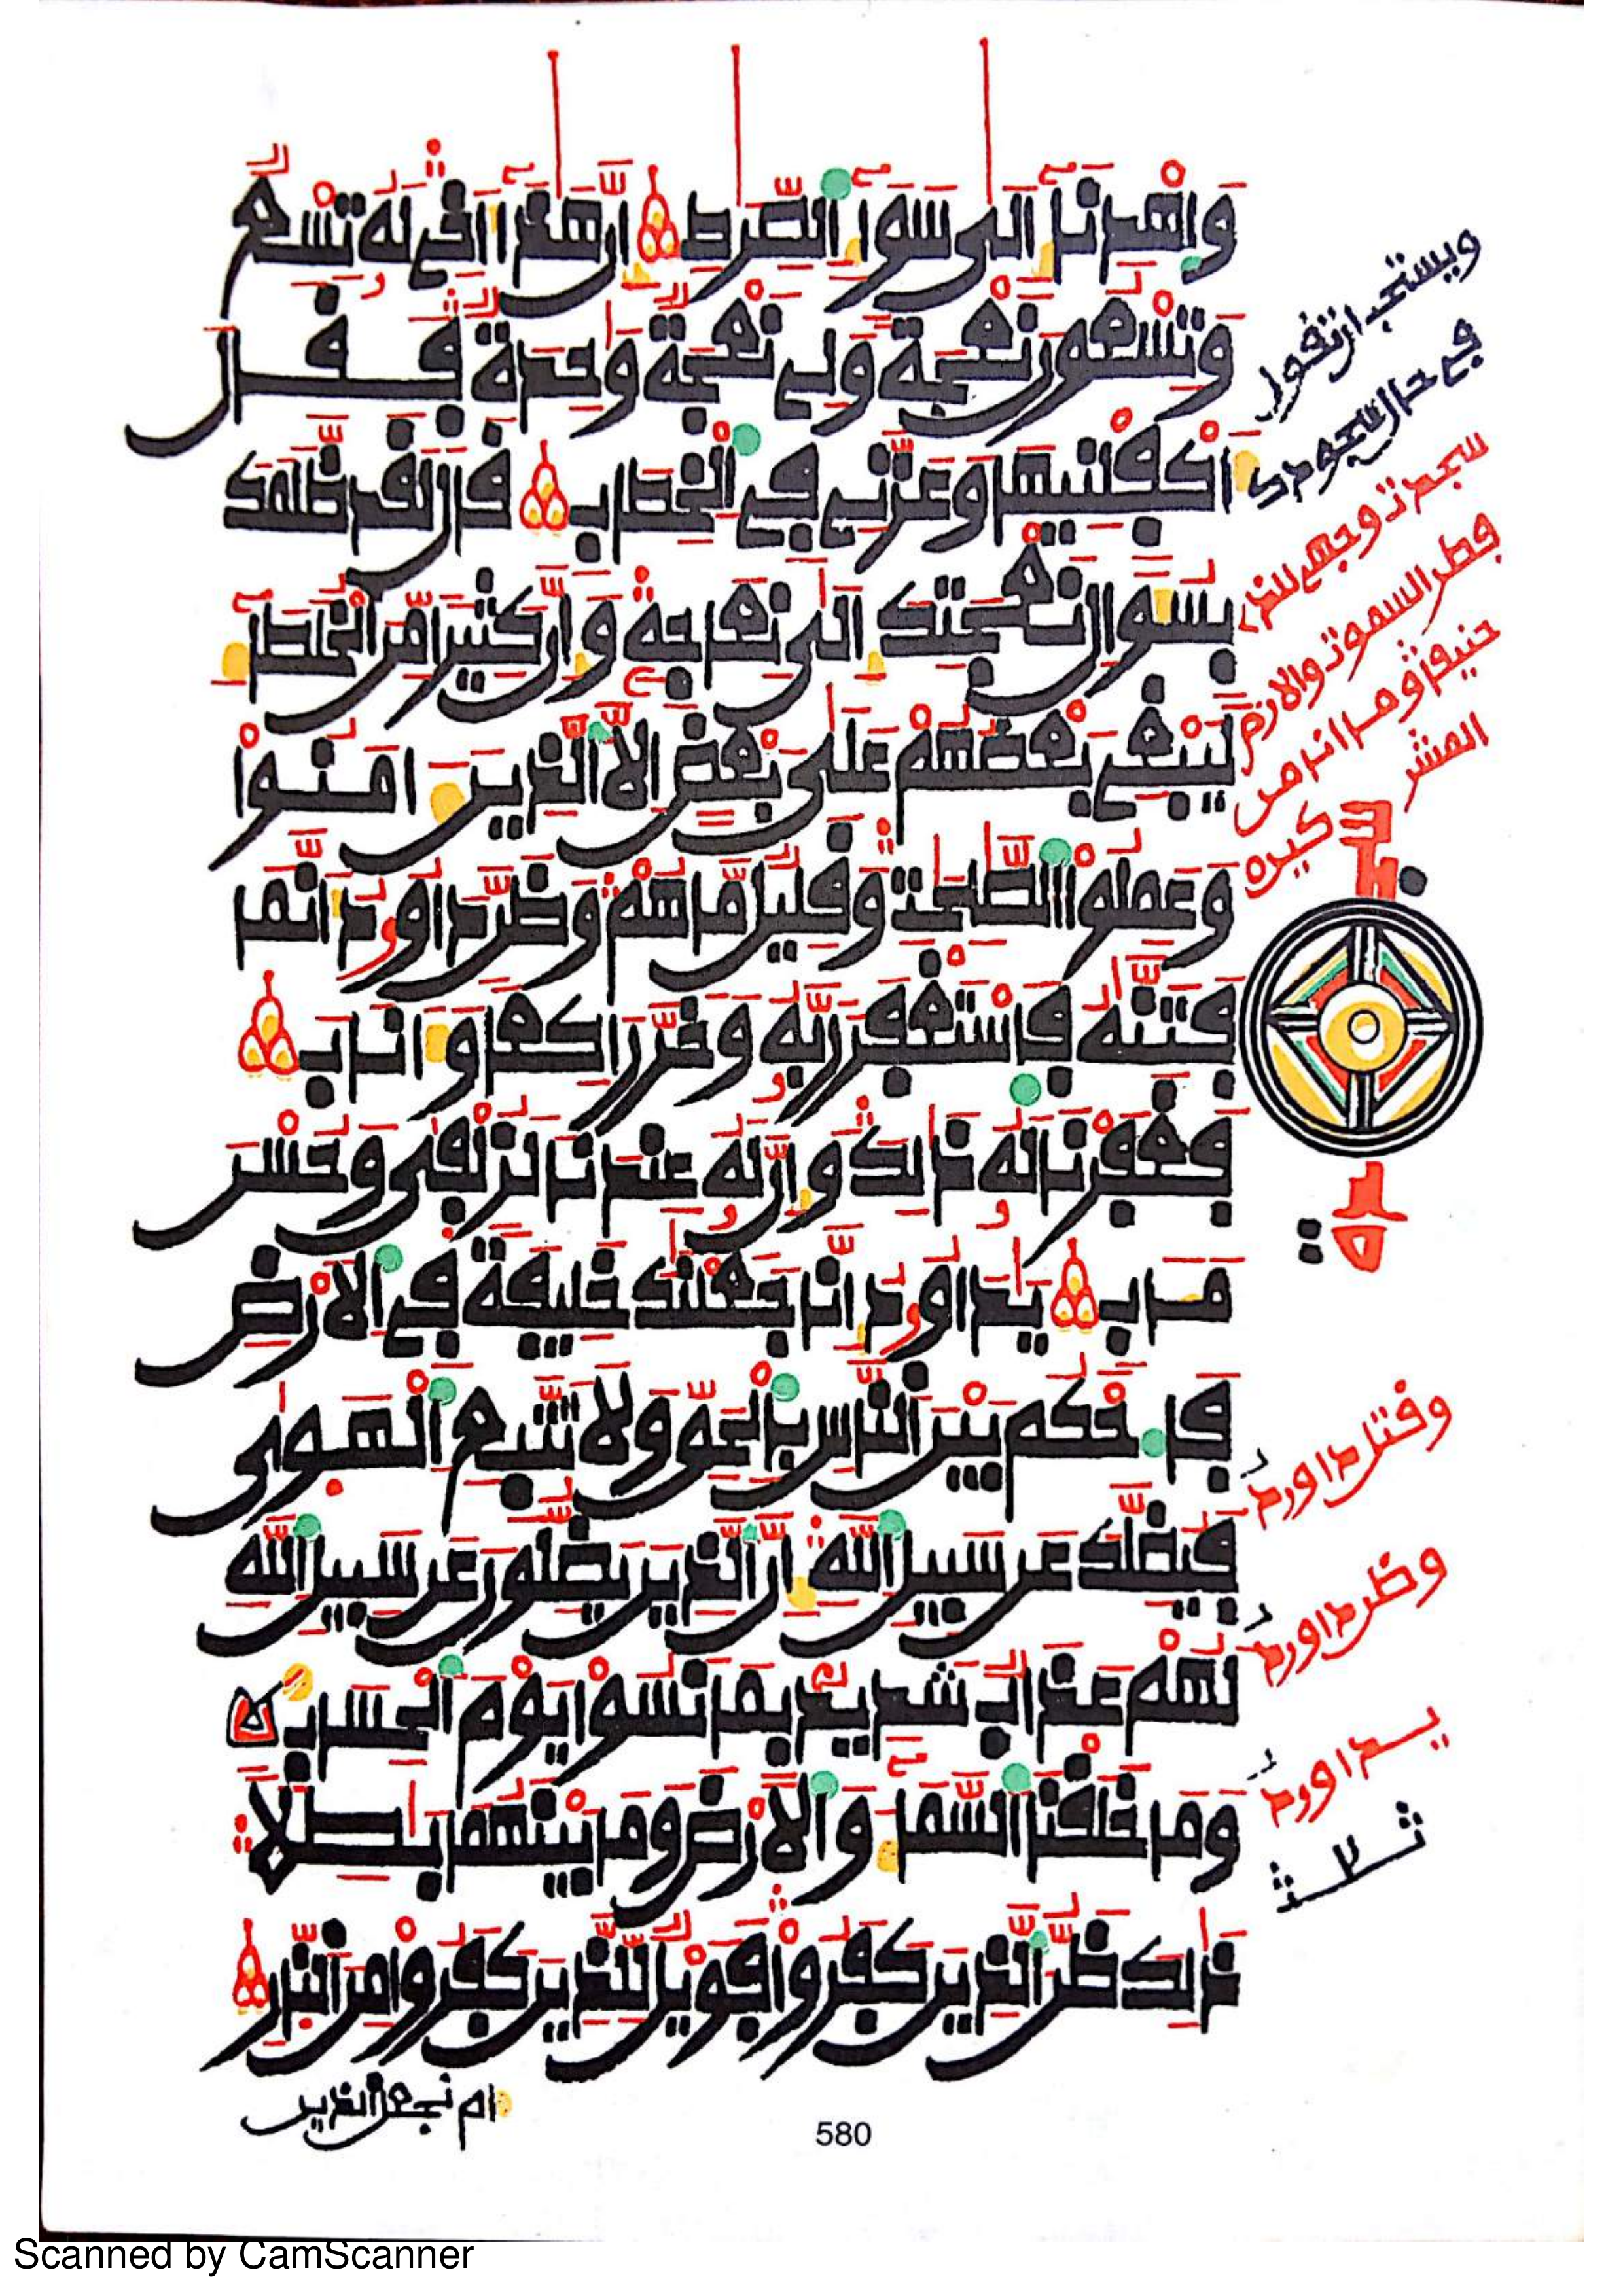 وَاهْدِنَا إِلَىٰ سَوَاءِ الصِّرَاطِ إِنَّ هَٰذَا أَخِي لَهُ تِسْعٌ
وَتِسْعُونَ نَعْجَةً وَلِي نَعْجَةٌ وَٰحِدَةٌ فَقَالَ
أَكْفِلْنِيهَا وَعَزَّنِي فِي الْخِطَابِ قَالَ لَقَدْ ظَلَمَكَ
بِسُؤَالِ نَعْجَتِكَ إِلَىٰ نِعَاجِهِ وَإِنَّ كَثِيرًا مِّنَ الْخُلَطَاءِ
لَيَبْغِي بَعْضُهُمْ عَلَىٰ بَعْضٍ إِلَّا الَّذِينَ ءَامَنُوا
وَعَمِلُوا الصَّٰلِحَٰتِ وَقَلِيلٌ مَّا هُمْ وَظَنَّ دَاوُۥدُ أَنَّمَا
فَتَنَّٰهُ فَاسْتَغْفَرَ رَبَّهُ وَخَرَّ رَاكِعًا وَأَنَابَ
فَغَفَرْنَا لَهُ ذَٰلِكَ وَإِنَّ لَهُ عِندَنَا لَزُلْفَىٰ وَحُسْنَ
مَـَٔابٍ يَٰدَاوُۥدُ إِنَّا جَعَلْنَٰكَ خَلِيفَةً فِي الْأَرْضِ
فَاحْكُم بَيْنَ النَّاسِ بِالْحَقِّ وَلَا تَتَّبِعِ الْهَوَىٰ
فَيُضِلَّكَ عَن سَبِيلِ اللَّهِ إِنَّ الَّذِينَ يَضِلُّونَ عَن سَبِيلِ اللَّهِ
لَهُمْ عَذَابٌ شَدِيدٌ بِمَا نَسُوا يَوْمَ الْحِسَابِ
وَمَا خَلَقْنَا السَّمَاءَ وَالْأَرْضَ وَمَا بَيْنَهُمَا بَٰطِلًا
ذَٰلِكَ ظَنُّ الَّذِينَ كَفَرُوا فَوَيْلٌ لِّلَّذِينَ كَفَرُوا مِنَ النَّارِ
ام نجعل الذين
580
ويستحب ان تقول
في حال السجود ك
سجدت وجهي للذي
فطر السموت والارض
حنيفا وما انا من
المشر
كين ه
وقتل داوود
وظن داوود
يداوود
ثلث
Scanned by CamScanner